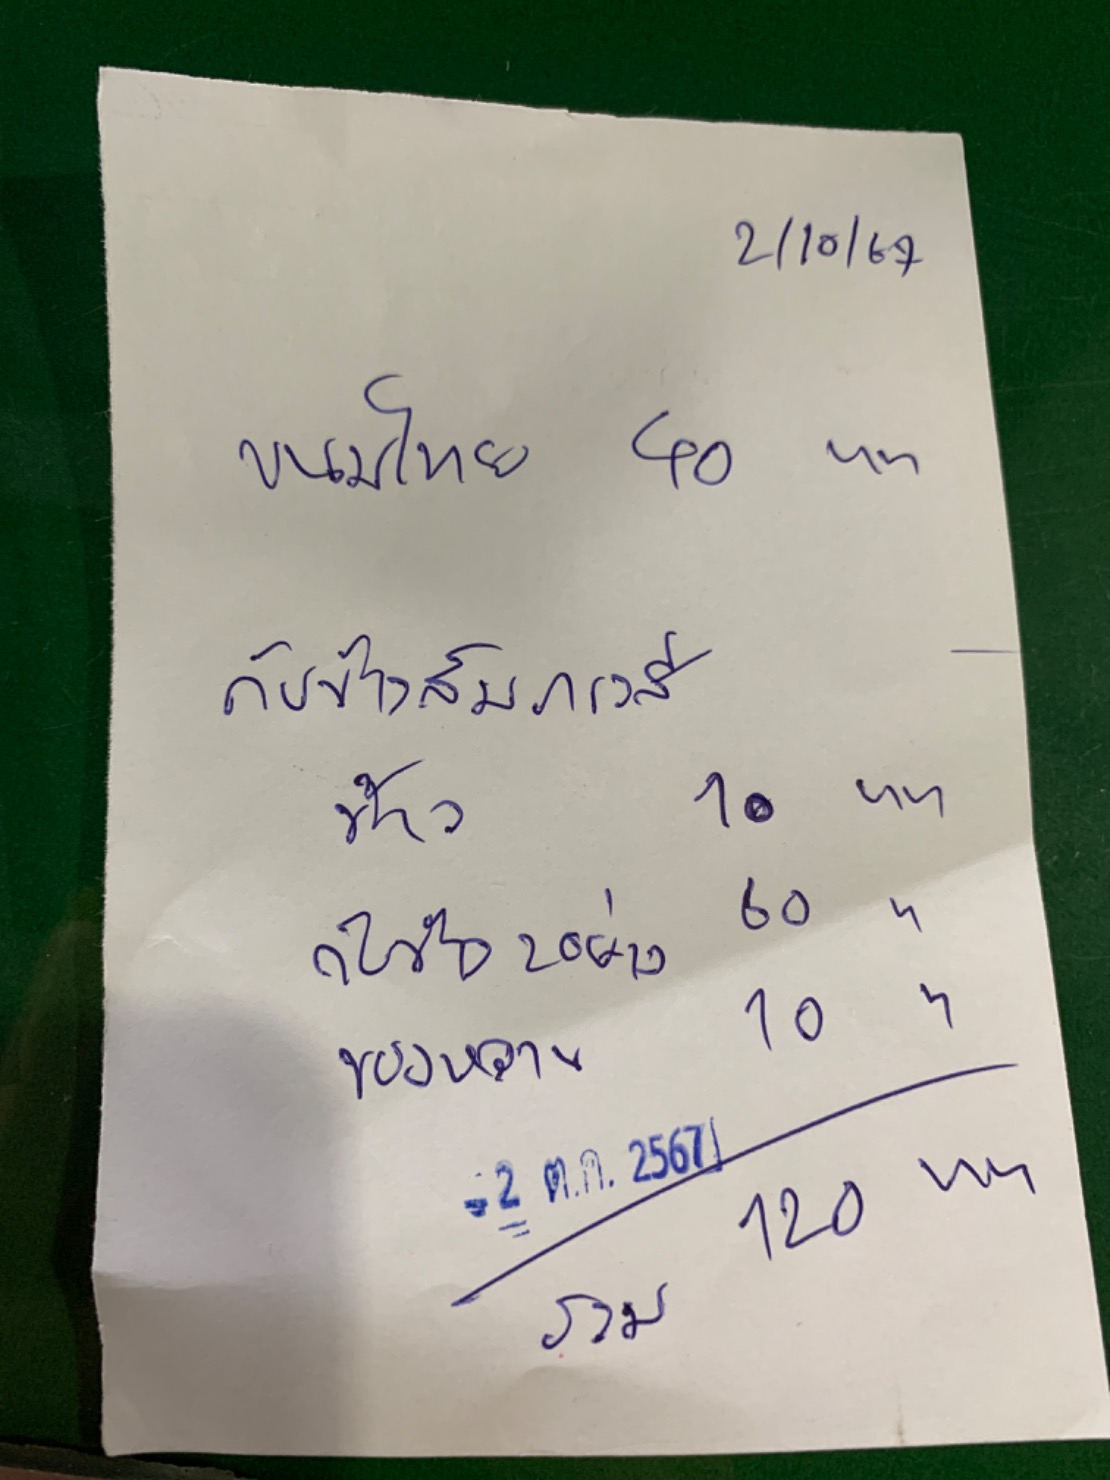 2/10/67
ขนมไทย 40 บาท
กับข้าวสัมภเวสี
ข้าว 10 บาท
กับข้าว 2 อย่าง 60 "
ของหวาน 10 "
-2 ต.ค. 2567
120 บาท
รวม